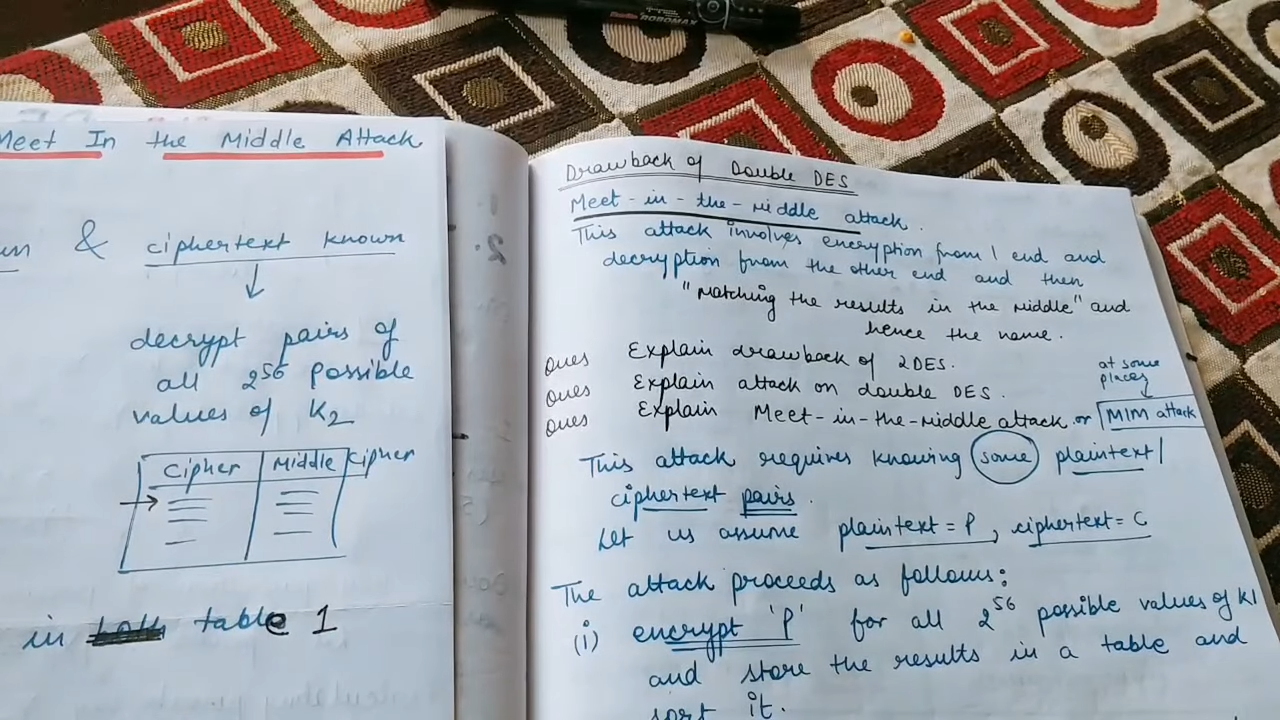 ROBOMAX
Meet In the Middle Attack
& ciphertext known
decrypt pairs of
all 2^56 possible
values of K2
Cipher Middle Cipher
in table 1
Drawback of Double DES
Meet-in-the-middle attack.
This attack involves encryption from 1 end and
decryption from the other end and then
"Matching the results in the middle" and
hence the name.
Ques Explain drawback of 2DES.
Ques Explain attack on double DES.
at some
places
Ques Explain Meet-in-the-middle attack or MIM attack
This attack requires knowing some plaintext/
ciphertext pairs.
Let us assume plaintext = P, ciphertext = C
The attack proceeds as follows:
(i) encrypt 'P' for all 2^56 possible values of K1
and store the results in a table and
sort it.